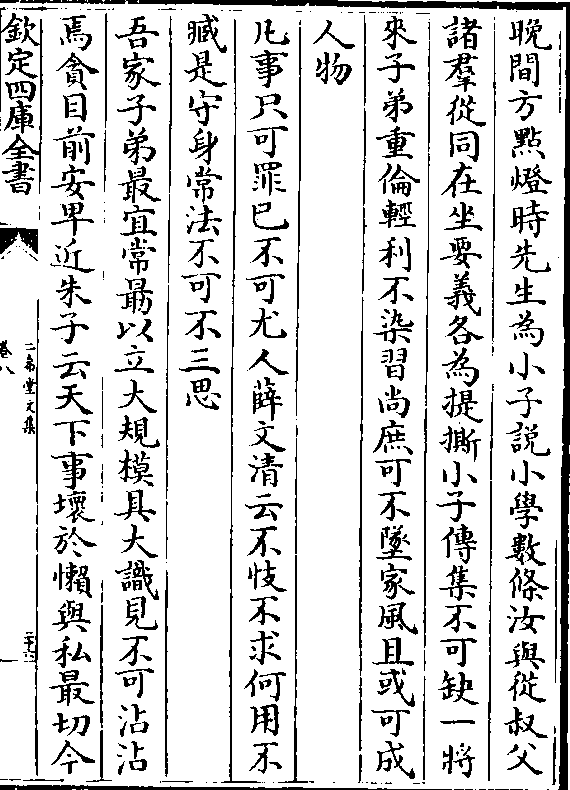 晚間方點燈時先生為小子說小學數條汝與從叔父
諸羣從同在坐要義各為提撕小子傳集不可缺一將
來子弟重倫輕利不染習尚庶可不墜家風且或可成
人物
凡事只可罪已不可尤人薛文清云不忮不求何用不
臧是守身常法不可不三思
吾家子弟最宜常勗以立大規模具大識見不可沾沾
焉貪目前安卑近朱子云天下事壞於懶與私最切今
欽定四庫全書
二希堂文集
卷八
二十六